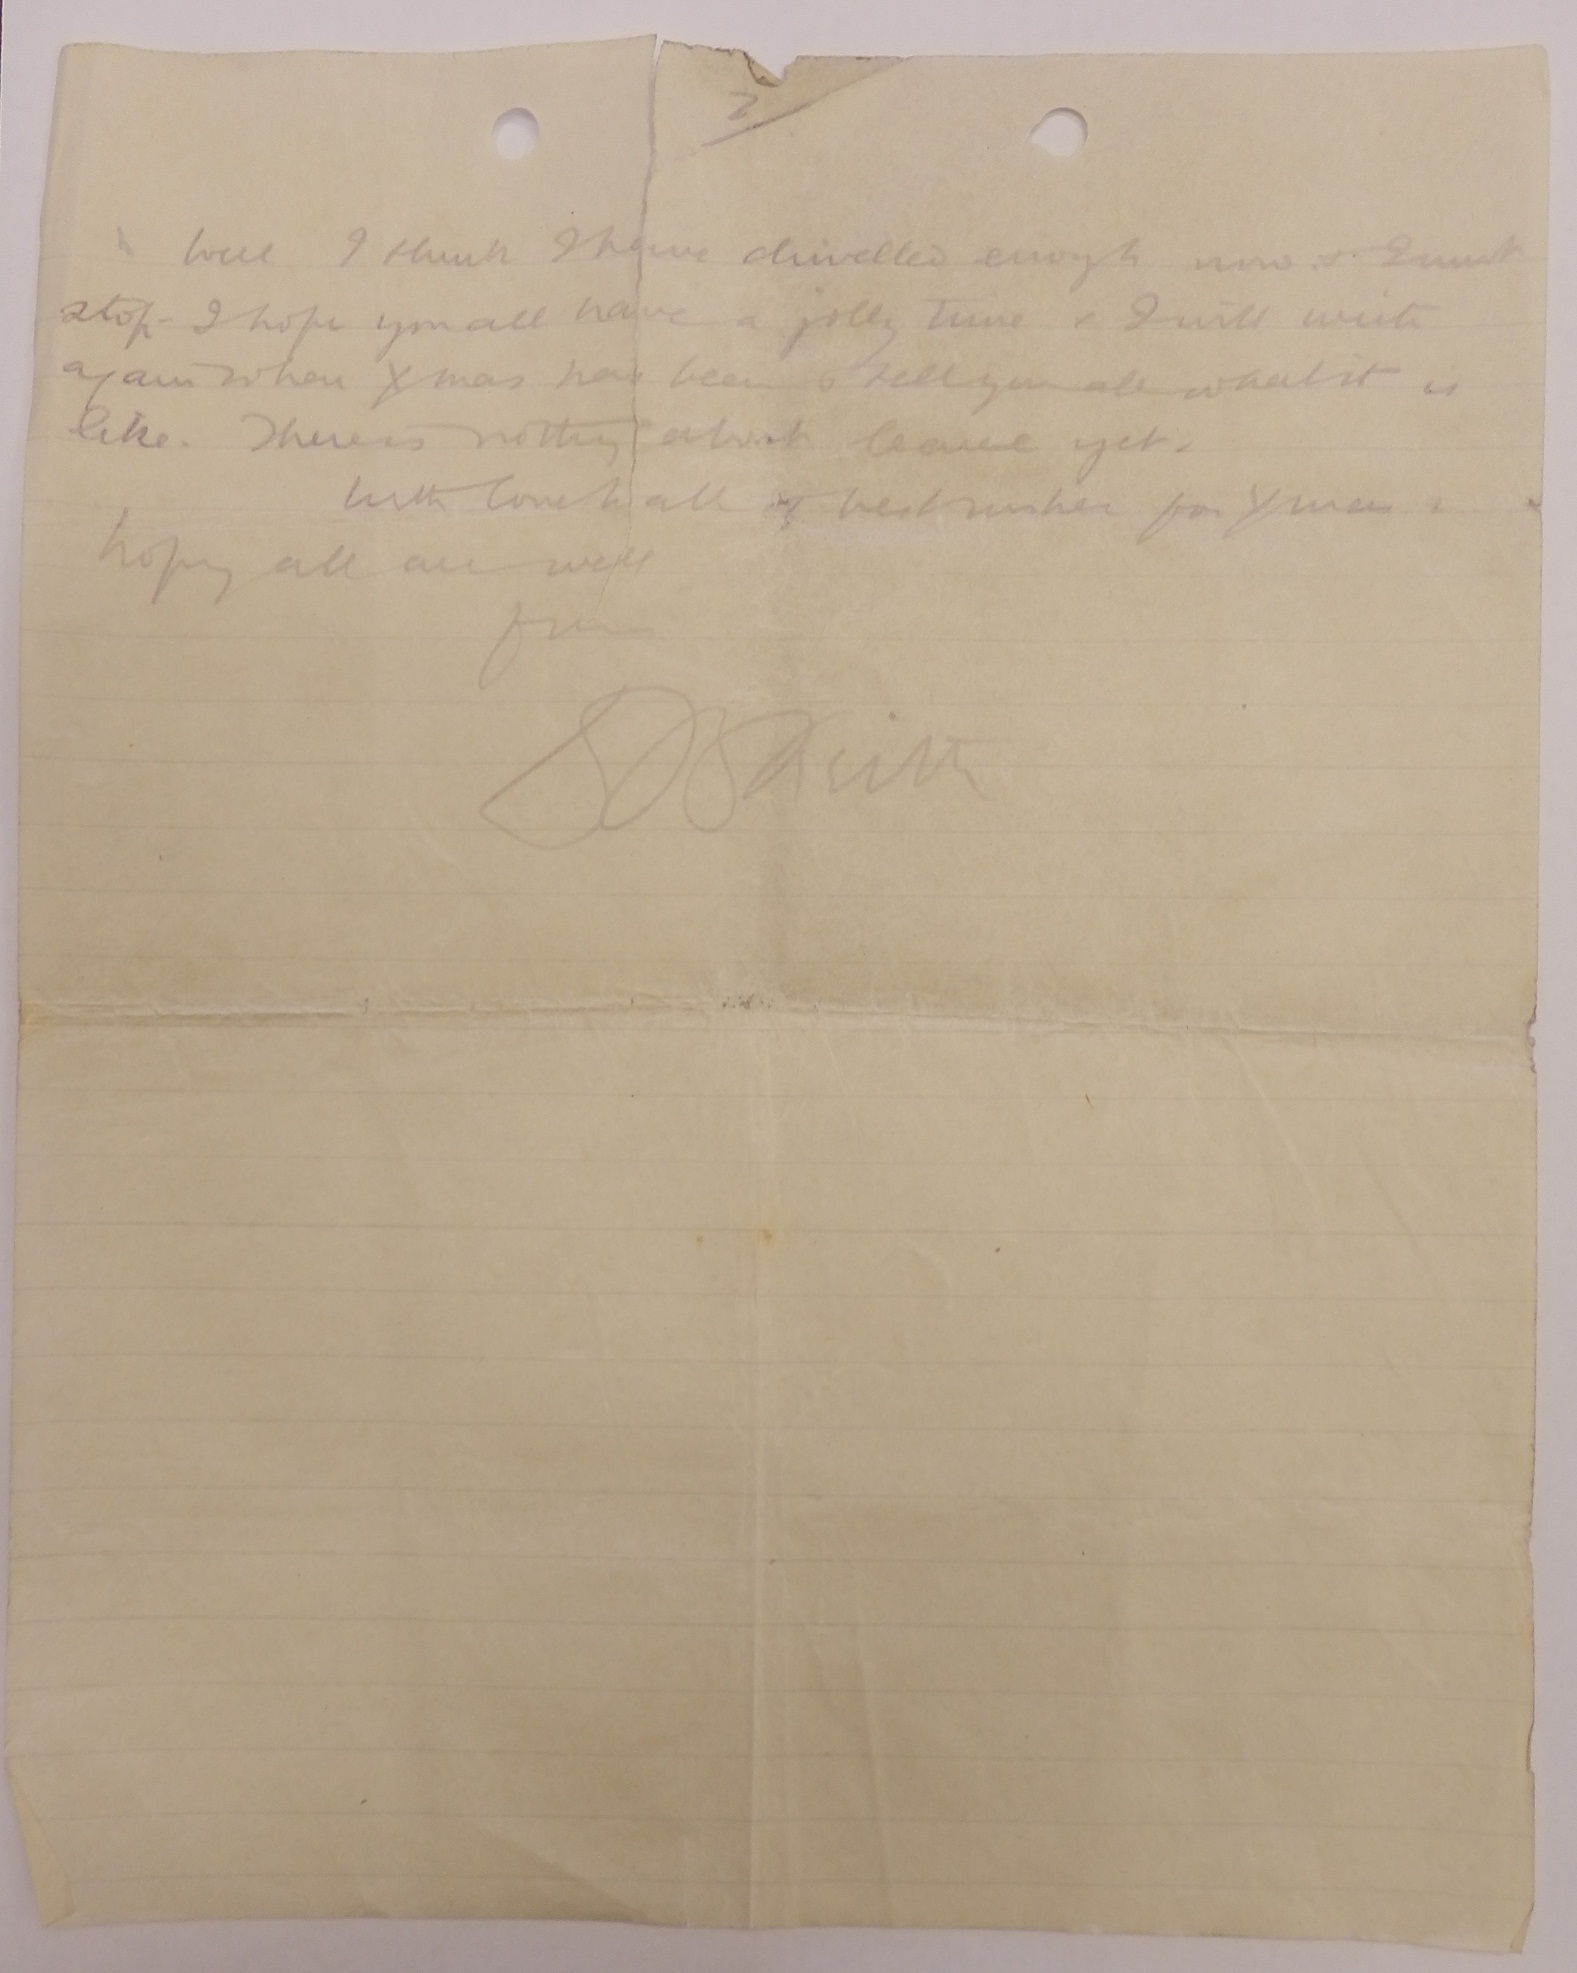 7
Well I think I have drivelled enough now & I must
stop. I hope you all have a jolly time & I will write
again when Xmas has been & tell you all what it is
like. There is nothing about leave yet.
With love to all & best wishes for Xmas &
hoping all are well
from
Keith